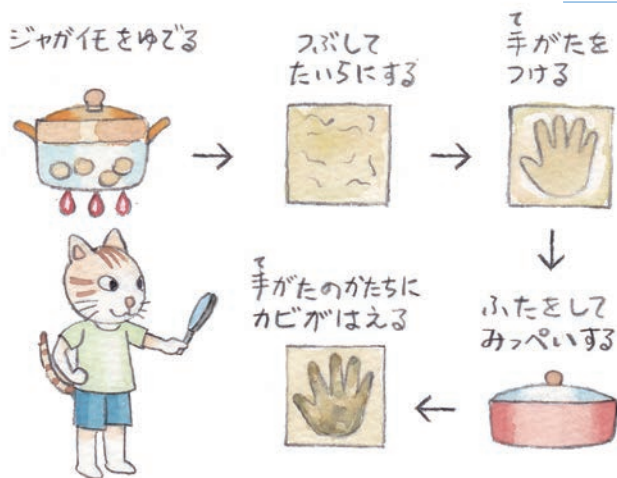 ジャガイモをゆでる
つぶして
たいらにする
て
手がたを
つける
ふたをして
みっぺいする
て
手がたのかたちに
カビがはえる